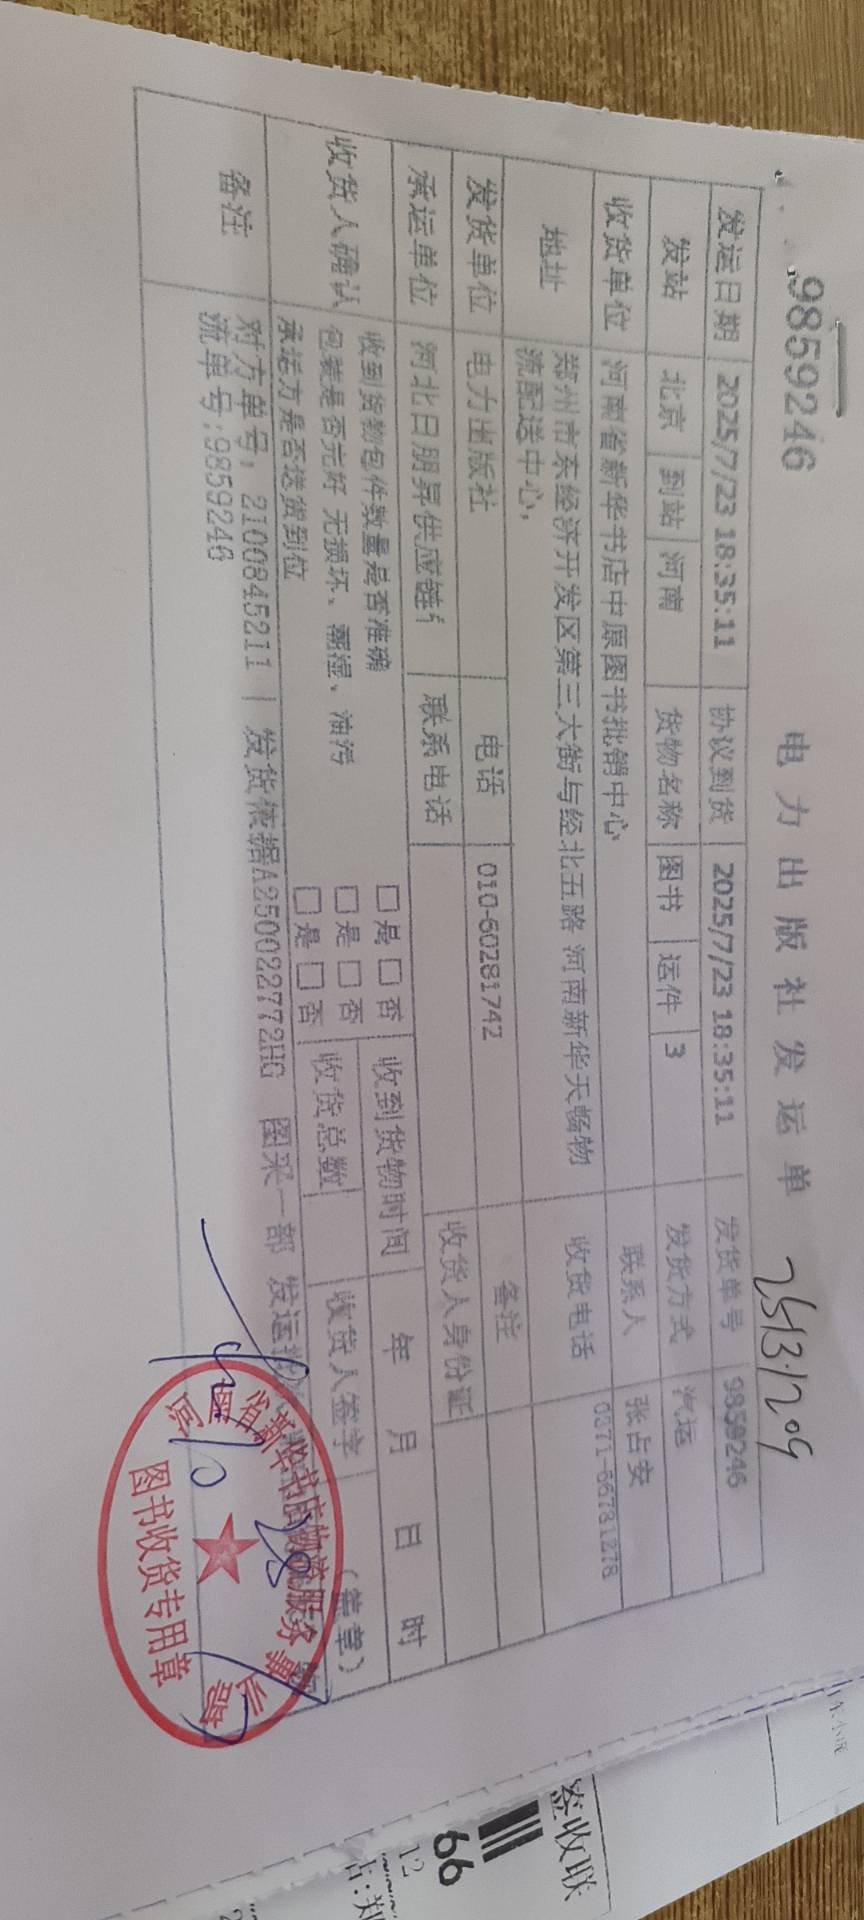 9859246
电力出版社发运单
2513.1209
发运日期 2025/7/23 18:35:11 协议到货 2025/7/23 18:35:11 发货单号 9859246
发站 北京 到站 河南 货物名称 图书 运件 3 发货方式 汽运
收货单位 河南省新华书店中原图书批销中心 联系人 张占安
地址 郑州市东经济开发区第三大街与经北五路 河南新华天畅物 收货电话 0371-66781278
流配送中心,
发货单位 电力出版社 电话 010-60281742 备注
承运单位 河北日朋昇供应链 联系电话 收货人身份证
收货人确认 收到货物包件数量是否准确 □是 □否 收到货物时间 年 月 日 时
包装是否完好 无损坏、潮湿、油污 □是 □否 收货总数 收货人签字 (盖章)
承运方是否送货到位 □是 □否
备注 对方单号, 2100845211 | 发货依据A250022772HG 图采一部 发运
流单号:9859246
河南省新华书店物流服务
图书收货专用章
签收联
66
12